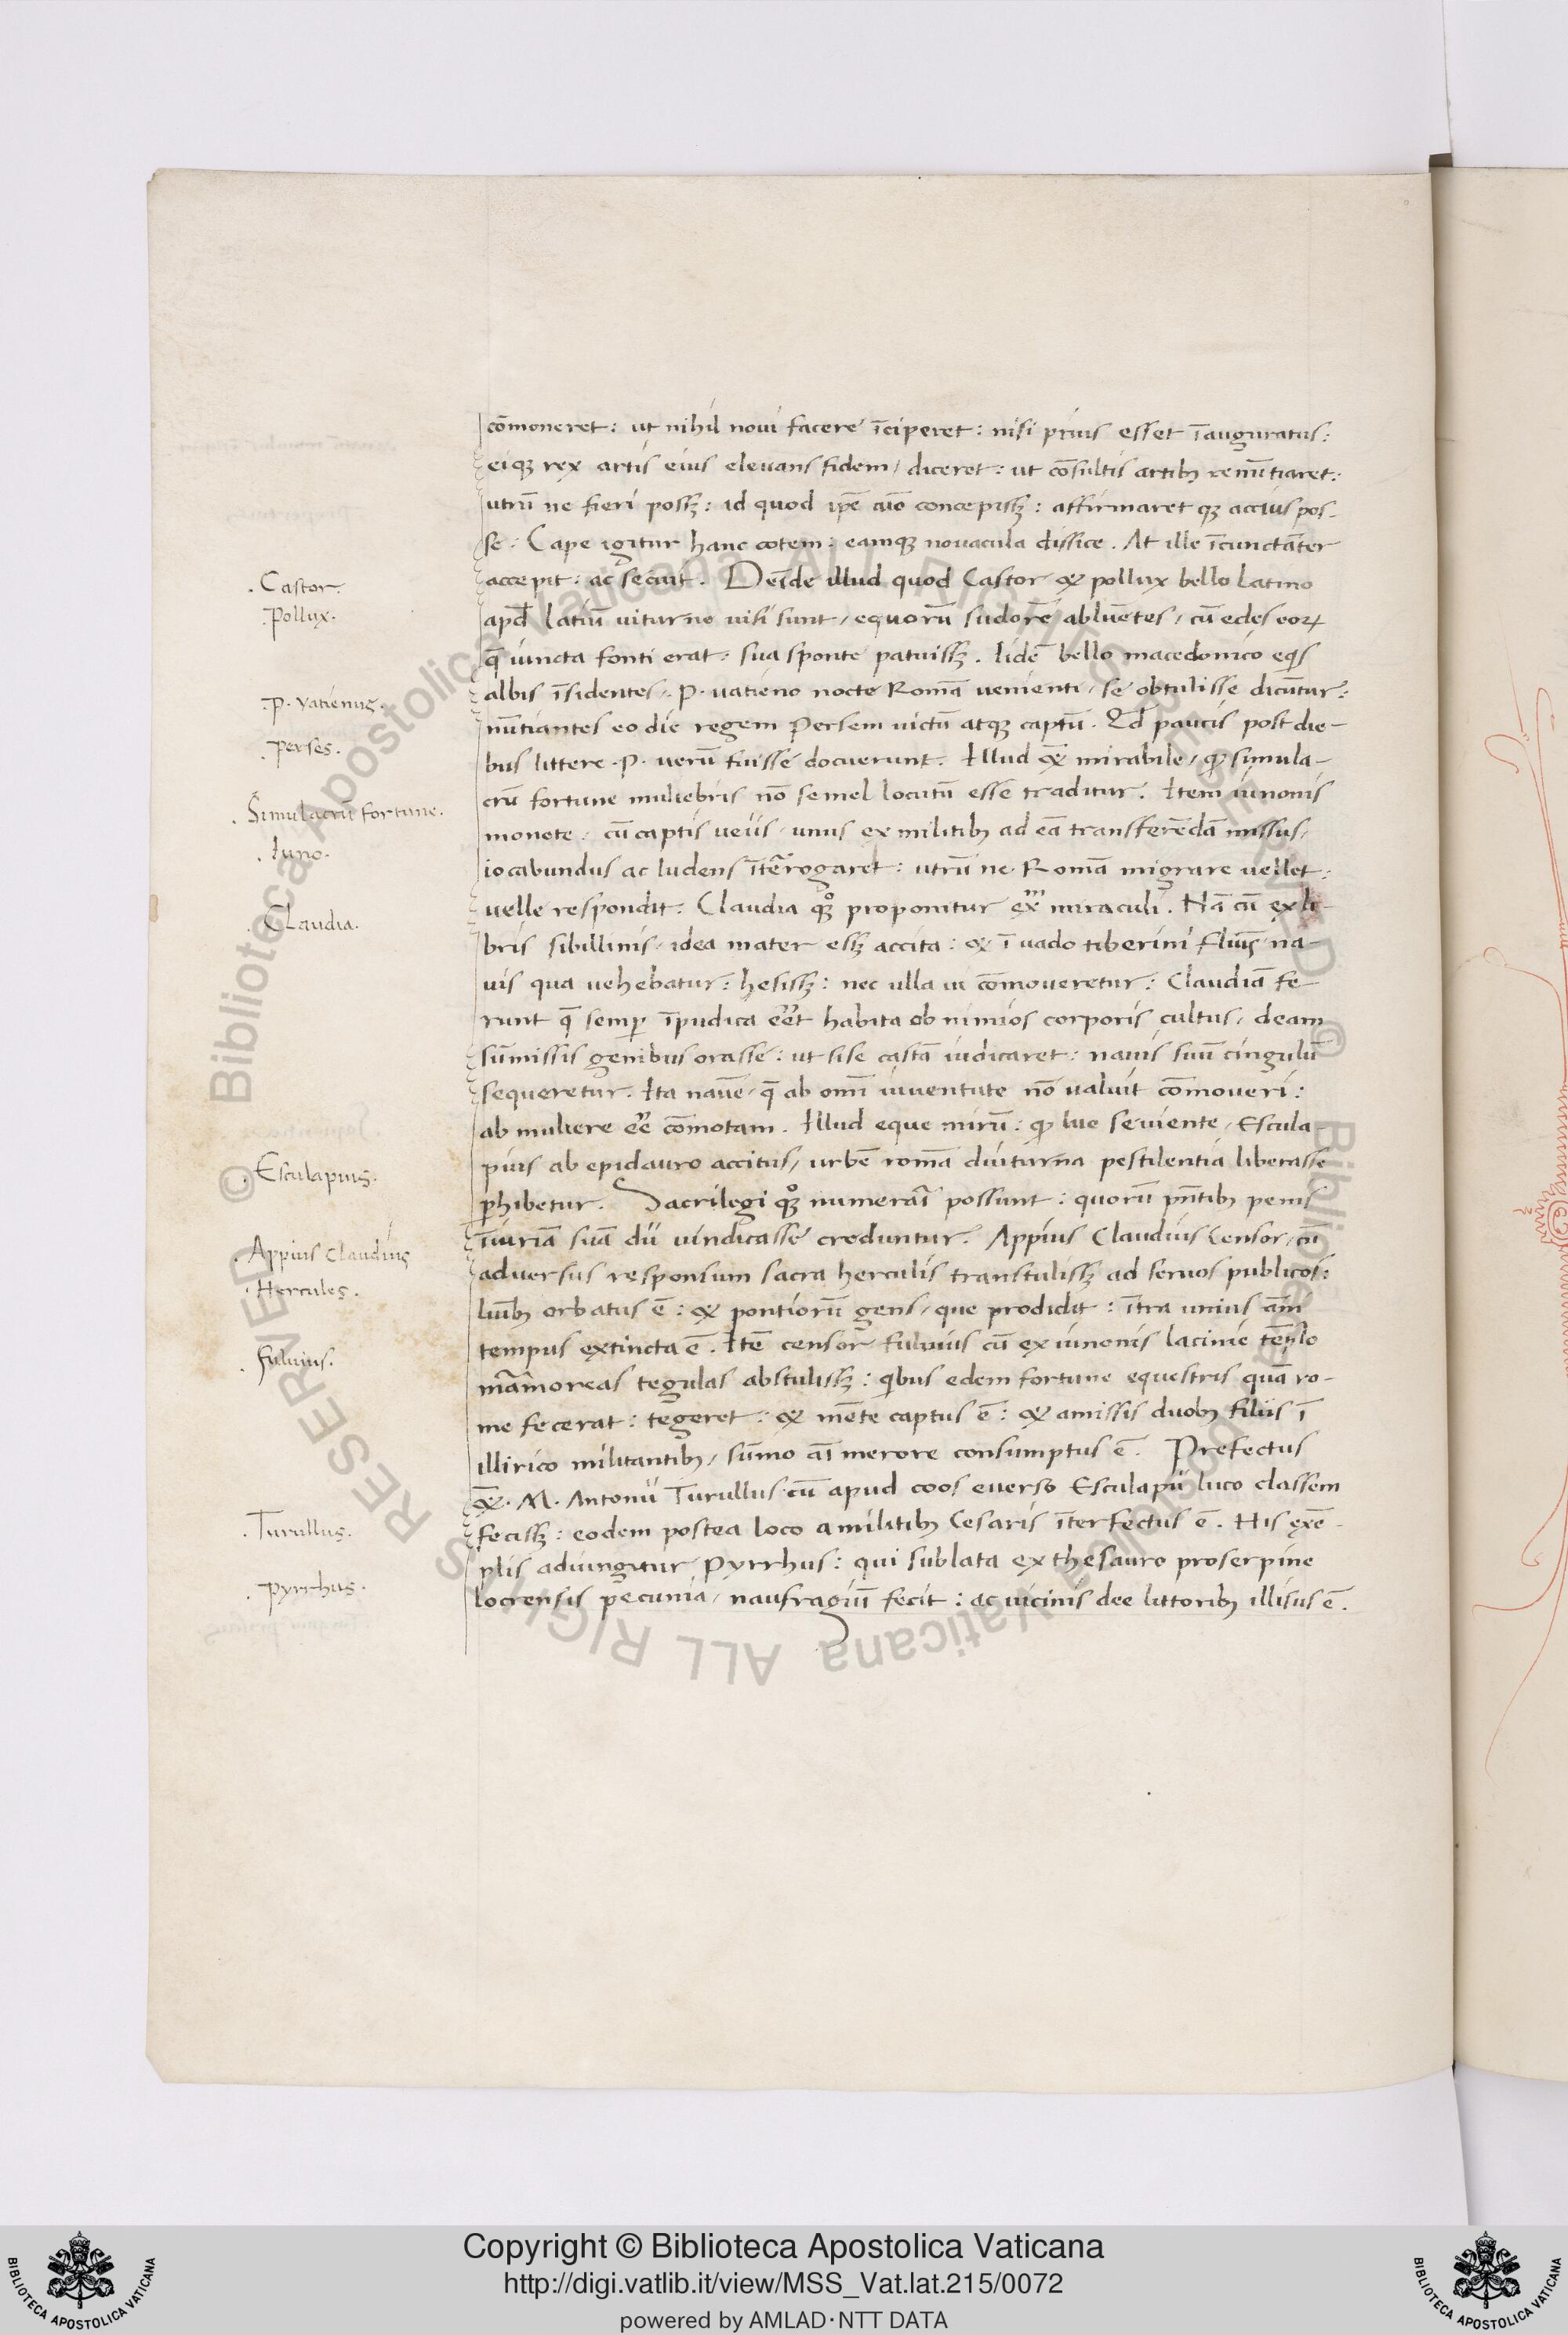 cōmoneret: ut nihil novi facere īciperet: nisi prius esset īauguratus:
eiqꝫ rex artis eius elevans fidem, diceret: ut cōsultis artibꝫ renūtiaret:
utrū ne fieri possꝫ: id quod ip̄e aīo concepissꝫ: affirmaret qꝫ accius pos-
se: Cape igitur hanc cotem: eamqꝫ novacula dissice. At ille īcunctāter
accepit: ac secuit. Deīde illud quod Castor & pollux bello Latino
apđ latiū viturne visi sunt, equorū sudorē abluētes, cū edes eoꝝ
q̄ iuncta fonti erat: sua sponte patuissꝫ. Iidē bello macedonico eqͥs
albis īsidentes, P. vatieno nocte Romā venienti, se obtulisse dicūtur:
nūtiantes eo die regem Persem victū atqꝫ captū. Qđ paucis post die-
bus littere .P. verū fuisse docuerunt. Illud q̄ mirabile, ꝙ simula-
crū fortune muliebris nō semel locutū esse traditur. Item iunonis
monete: cū captis veiis, unus ex militibꝫ ad eā transferēdā missus,
iocabundus ac ludens īterrogaret: utrū ne Romā migrare vellet:
velle respondit. Claudia qꝫͦ proponitur exm̄ miraculi. Nā cū ex li-
bris sibillinis, idea mater essꝫ accita: & ī vado tiberini fluīs na-
vis qua vehebatur: hesissꝫ: nec ulla vi cōmoveretur: Claudiā fe-
runt q̄ semꝑ īpudica eēt habita ob nimios corporis cultus, deam
sūmissis genibus orasse: ut si se castā iudicaret: navis suū cingulū
sequeretur. Ita navē, q̄ ab omī iuventute nō valuit cōmoveri:
ab muliere eē cōmotam. Illud eque mirū: ꝙ lue seviente, Escula-
pius ab epidauro accitus, urbē romā diuturna pestilentia liberasse
ꝑhibetur. Sacrilegi qꝫͦ numerari possunt: quorū pn̄tibꝫ penis
īiuriā suā dii vindicasse creduntur. Appius Claudius Censor, cū
adversus responsum sacra herculis transtulissꝫ ad servos publicos:
luībꝫ orbatus ē: & pontiorū gens, que prodidit: ītra unius anī
tempus extincta ē. Itē censor fulvius cū ex iunonis lacinie tēplo
marmoreas tegulas abstulissꝫ: qͥbus edem fortune equestris quā ro-
me fecerat: tegeret: & mēte captus ē: & amissis duobꝫ filiis ī
illirico militantibꝫ, sūmo aī merore consumptus ē. Prefectus
q̄. M. Antonii Turullus cū apud coos everso Esculapii luco classem
fecissꝫ: eodem postea loco a militibꝫ Cesaris īterfectus ē. His exē-
plis adiungitur Pyrrhus: qui sublata ex thesauro proserpine
locrensis pecunia, naufragiū fecit: ac vicinis dee littoribꝫ illisus ē.
. Castor.
. Pollux.
. P. Vatienus.
. Perses.
. Simulacrū fortune.
. Iuno.
. Claudia.
. Esculapius.
. Appius Claudius
. Hercules.
. Fulvius.
. Turullus.
. Pyrrhus.
© Biblioteca Apostolica Vaticana ALL RIGHTS RESERVED
© Biblioteca Apostolica Vaticana ALL RIGHTS RESERVED
Copyright © Biblioteca Apostolica Vaticana
http://digi.vatlib.it/view/MSS_Vat.lat.215/0072
powered by AMLAD·NTT DATA
BIBLIOTECA APOSTOLICA VATICANA
BIBLIOTECA APOSTOLICA VATICANA